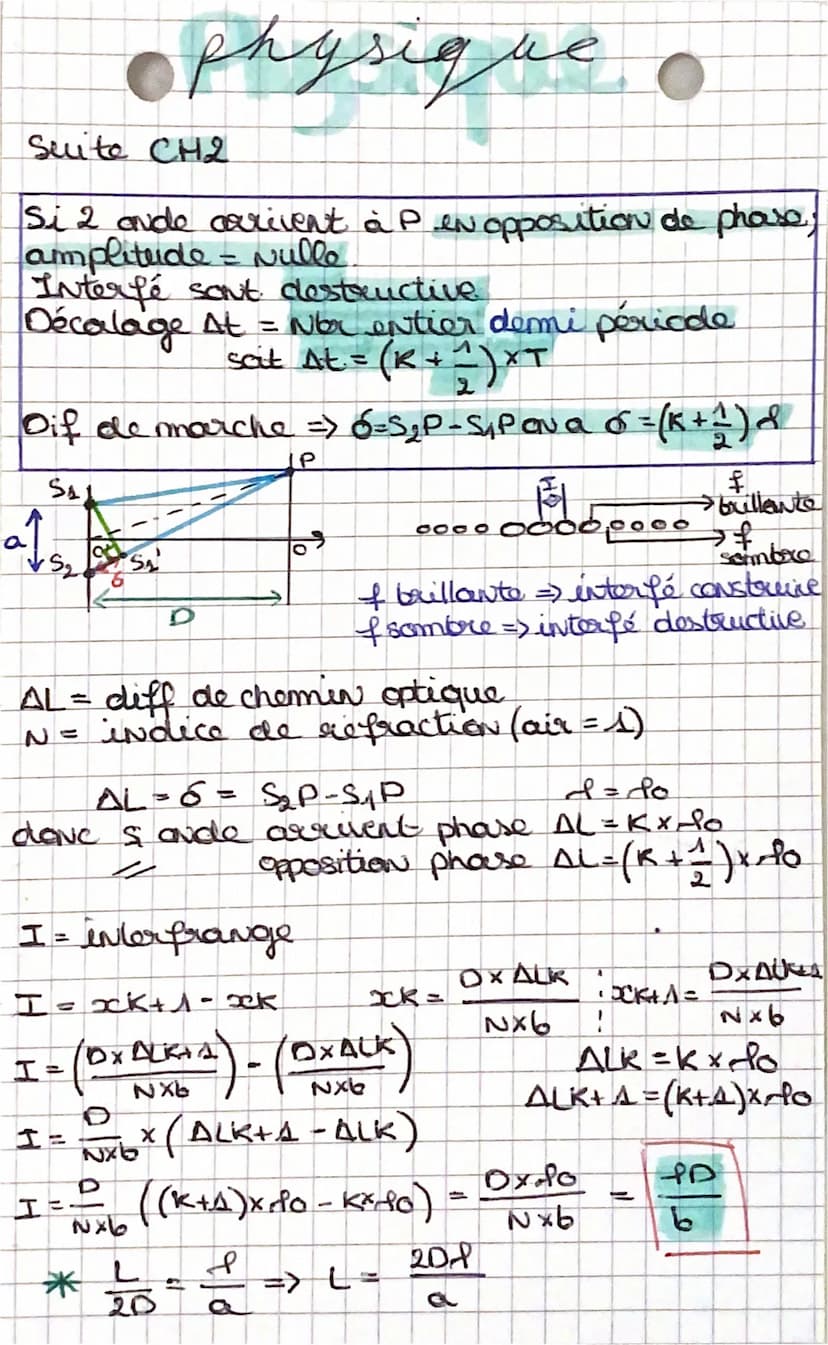 Physique
Suite CH2
Si 2 onde arrivent à P en opposition de phase,
amplitude = Nulle.
Interfé sont destructive
Décalage Δt = Nbr entier demi période
soit Δt = (K + 1/2) × T
Dif de marche => δ=S₂P-S₁P on a δ =(K+1/2) λ
P
S₁
a
S₂
α
S₁'
δ
O
D
I
f brillante
f sombre
f brillante => interfé construire
f sombre => interfé destructive
ΔL = diff de chemin optique
N = indice de réfraction (air = 1)
ΔL = δ = S₂P-S₁P λ = λ0
donc si onde arrivent phase ΔL = K × λ0
// opposition phase ΔL=(K + 1/2) × λ0
I = interfrange
I = xK+1 - xK xK = D × ΔLK / N×b xK+1 = D×ΔLK+1 / N×b
I = (D× ΔLK+1 / N×b) - (D×ΔLK / N×b) ΔLK = K × λ0
ΔLK+1 =(K+1)×λ0
I = D / N×b × (ΔLK+1 - ΔLK)
I = D / N×b ((K+1)×λ0 - K×λ0) = D×λ0 / N×b = λD / b
* L/2D = λ/a => L = 2Dλ / a